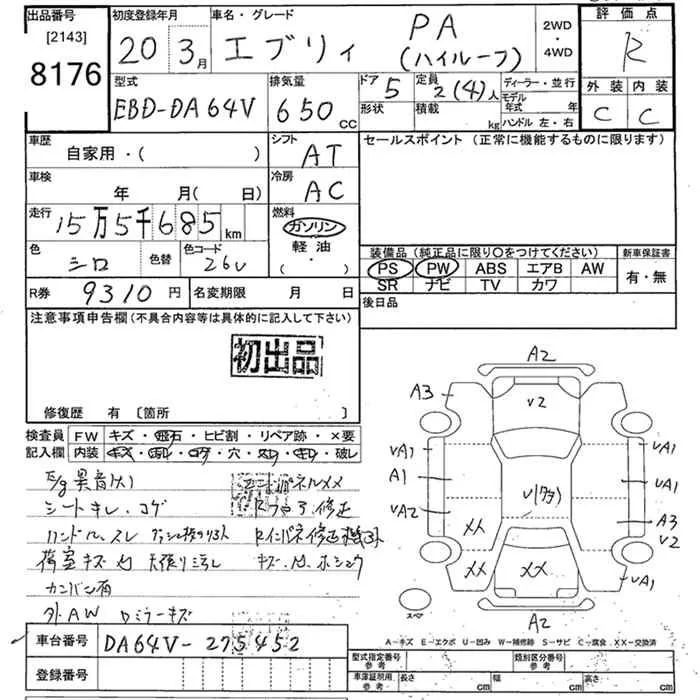 出品番号
[2143]
8176
初度登録年月
20 3月
車名・グレード
エブリィ
PA
(ハイルーフ)
2WD
・
4WD
評価点
R
外装 内装
C C
型式
EBD-DA64V
排気量
650 cc
ドア 5
形状
定員
2(4)人
積載
kg
ディーラー・並行
モデル
年式 年
ハンドル 左・右
車歴
自家用・( )
シフト
AT
セールスポイント (正常に機能するものに限ります)
車検
年 月( 日)
冷房
AC
走行
15万5千685km
燃料
ガソリン
軽油
( ・ )
色
シロ
色替
色コード
26U
装備品 (純正品に限り○をつけてください)
PS PW ABS エアB AW
SR ナビ TV カワ
新車保証書
有・無
R券 9310円
名変期限 月 日
後日品
注意事項申告欄(不具合内容等は具体的に記入して下さい)
初出品
修復歴 有 〔箇所 〕
検査員
記入欄
FW キズ・飛石・ヒビ割・リペア跡・×要
内装 キズ・汚レ・コゲ・穴・スレ・キレ・破レ
E/g異音(大)
シートキレ・コゲ
ハンドルスレ
荷室キズ凹 天張り汚レ
カンバン有
外AW ロミラーキズ
修正
キズ・凹・ホショウ
A2
A3
V2
VA1
VA1
A1
VA1
V(クタ)
VA2
XX
A3
V2
XX
XX
VA1
A2
スペア
A-キズ E-エクボ U-凹み W-補修跡 S-サビ C-腐食 XX-交換済
車台番号
DA64V-275452
登録番号
型式指定番号
参考
類別区分番号
参考
車庫証明用
参考
長さ cm
幅 cm
高さ cm